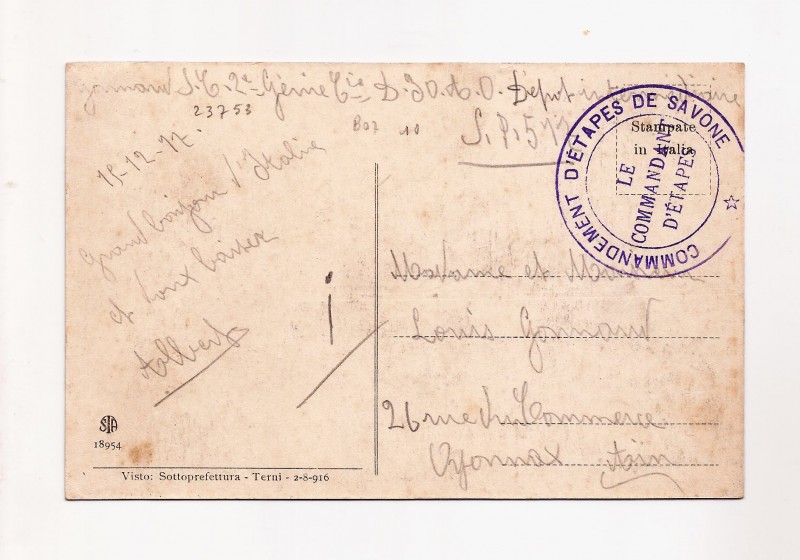 Gonnand S.T. 2e Génie Cie D.30. A.O. Dépot intermédiaire
23753
B07 10
S.P. 511
COMMANDEMENT D'ÉTAPES DE SAVONE
LE COMMANDANT D'ÉTAPES
Stampate
in Italia
15-12-17.
Grand bonjour d'Italie
et doux baiser
Albert
Madame et Monsieur
Louis Gonnand
26 rue du Commerce
Oyonnax Ain
STA
18954
Visto: Sottoprefettura - Terni - 2-8-916